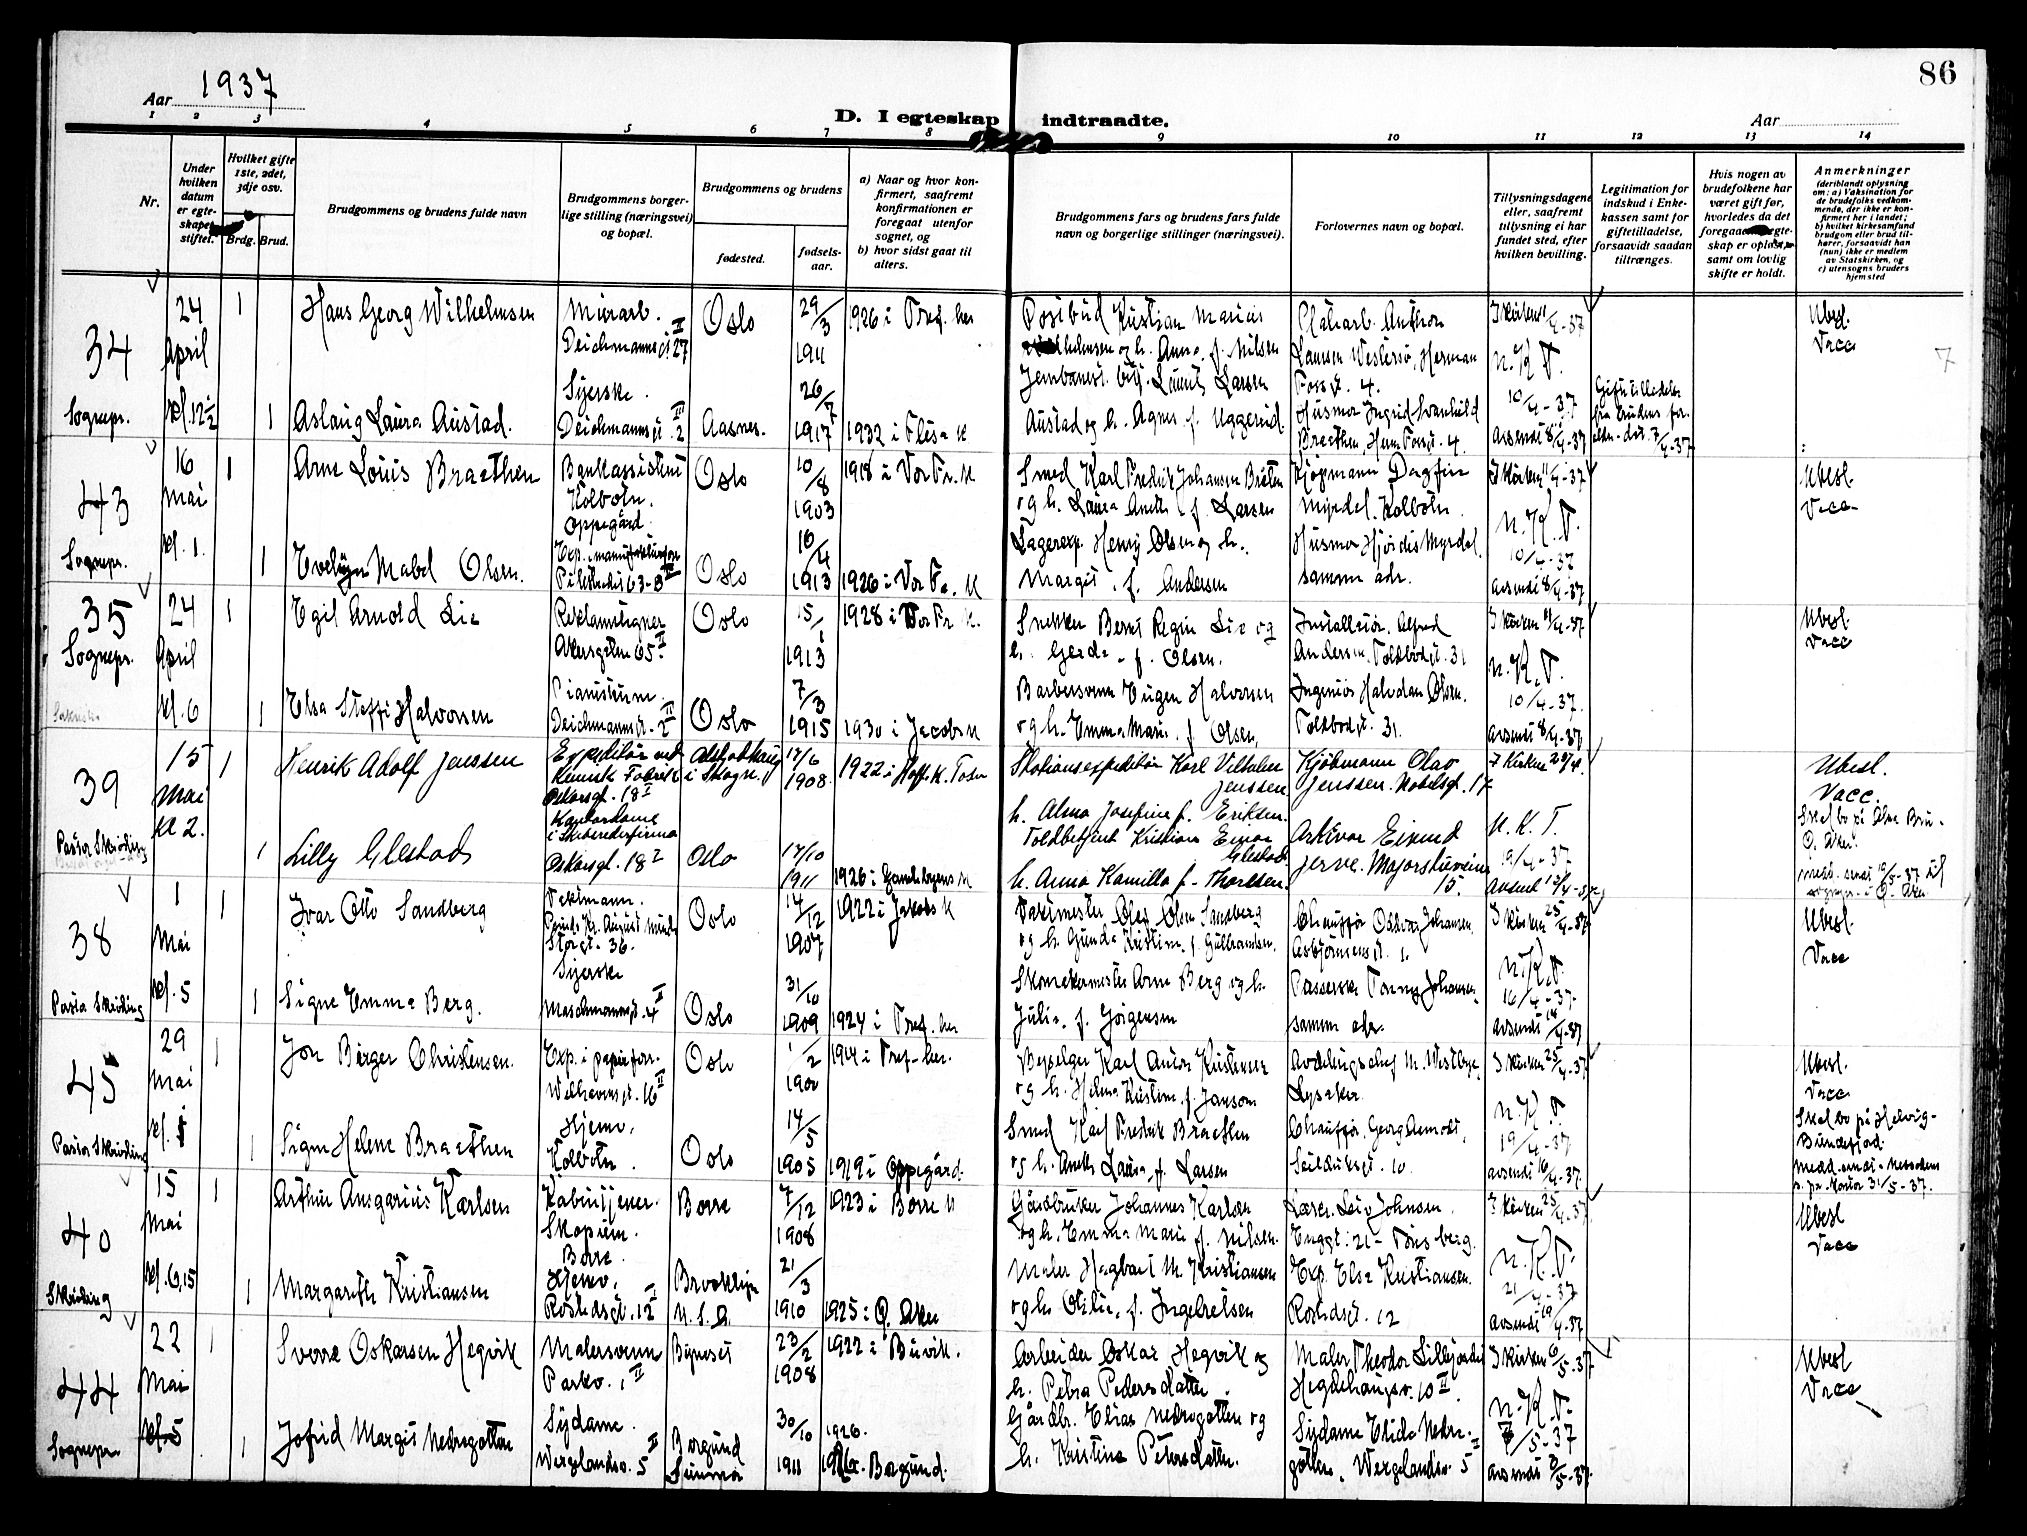 86
Aar 1937
D. I egteskap indtraadte.
Aar
1 2 3 4 5 6 7 8 9 10 11 12 13 14
Nr.
Under hvilken datum er egteskapet stiftet.
Hvilket gifte 1ste, 2det, 3dje osv.
Brdg. Brud.
Brudgommens og brudens fulde navn
Brudgommens borgerlige stilling (næringsvei) og bopæl.
Brudgommens og brudens
fødested.
fødselsaar.
a) Naar og hvor konfirmert, saafremt konfirmationen er foregaat utenfor sognet, og
b) hvor sidst gaat til alters.
Brudgommens fars og brudens fars fulde navn og borgerlige stillinger (næringsvei).
Forlovernes navn og bopæl.
Tillysningsdagene eller, saafremt tillysning ei har fundet sted, efter hvilken bevilling.
Legitimation for indskud i Enkekassen samt for giftetilladelse, forsaavidt saadan tiltrænges.
Hvis nogen av brudefolkene har været gift før, hvorledes da det foregaaende egteskap er opløst, samt om lovlig skifte er holdt.
Anmerkninger
(deriblandt oplysning om: a) Vaksination for de brudefolks vedkommende, der ikke er konfirmert her i landet; b) hvilket kirkesamfund brudgom eller brud tilhører, forsaavidt han (hun) ikke er medlem av Statskirken, og c) utensogns bruders hjemsted
34
Sognepr.
24 April kl. 12½
1
Hans Georg Wilhelmsen
Murarb.
Deichmannsgt. 27 II
Oslo
29/3 1911
1926 i Tref. her
Postbud Kristian Marius
Wilhelmsen og h. Anna f. Nilsen
Plátarb. Anthon
Laursen Westersø, Herman
Fossgt. 4.
I Kirken 11/4-37
N.K.T.
10/4-37
avsendt 8/4-37
Ubesl.
Vacc
7
1
Aslaug Laura Austad.
Syerske.
Deichmannsgt. 2 III
Aasnes.
26/7 1917
1932 i Flisa K
Jernbanest. betj. Laurits Larsen
Austad og h. Agnes f. Uggerud.
Husmor Ingrid Svanhild
Braathen Herm. Fossgt. 4.
Giftetilladelse
fra brudens for-
eldre. dat. 7/4-37
43
Sognepr.
16 Mai kl. 1.
1
Arne Louis Braathen
Bankassistent
Kolbotn.
Oppegård.
Oslo
10/8 1903
1918 i Vor Fr. K
Smed Karl Fredrik Johansen Bråten
og h. Laura Anette f. Larsen
Kjøpmann Dagfin
Myrdal. Kolbotn.
I Kirken 11/4-37
N.K.T.
10/4-37
avsendt 8/4-37
Ubesl.
Vacc
1
Evelyn Mabel Olsen.
Exp. i manufakturforr.
Pilestredet 63-B III
Oslo
16/4 1913
1926 i Vor Fr. K
Lagerexp. Henry Olsen og h.
Margit, f. Andersen
Husmor Hjørdis Myrdal.
samme adr.
35
Sognepr.
24 April kl. 6
1
Egil Arnold Lie
Reklametegner
Akersgaten 65 II
Oslo
15/1 1913
1928 i Vor Fr K.
Snekker Bernt Regin Lie og
h. Gerda f. Olsen.
Installatør. Alfred
Andersen. Toldbodgt. 31
I Kirken 11/4-37
N.K.T.
10/4-37.
avsendt 8/4-37
Ubesl.
Vacc
1
Elsa Steffi Halvorsen
Pianistinne.
Deichmannsgt. 2 II
Oslo
7/3 1915
1930 i Jacobs K
Barbersvenn Eugen Halvorsen
og h. Emma Marie f. Olsen,
Ingeniør Halvdan Olsen.
Toldbodgt. 31.
39
Pastor Skrøding
15 Mai kl 2.
1
Henrik Adolf Jenssen
Expeditør ved
Kemisk Fabrikk
Oskarsgt. 18 I
i Skogn.
17/6 1908.
1922 i
Stationsexpeditør Karl Vilhelm
Jenssen
h. Alma Josefine f. Eriksen.
Kjøbmann Olav
Jenssen. Nobelsgt. 17
I Kirken 25/4.
N.K.T.
19/4-37
Avsendt 17/4-37
Ubesl.
Vacc.
1
Lilly Glestad
Kontordame
i Skibsrederfirma
Oskarsgt. 18 I
Oslo
17/10 1911
1926 i Gamlebyens K
Toldbetjent Kristian Einar
Glestad.
h. Anna Kamilla f. Thorlsen.
Arkivar Eivind
Jerve. Majorstuveien
15.
38
Pastor Skrøding
1 Mai kl. 5
1
Ivar Otto Sandberg
Vektmann.
Storgt. 36.
Oslo
14/12 1907
1922 i Jakobs K
Vaktmester Olaf Olsen Sandberg
og h. Gunda Kristine f. Gulbrandsen.
Chauffør Oddvar Johansen.
Asbjørnsensgt. 1.
I Kirken 25/4-37
N.K.T.
16/4-37.
avsendt 14/4-37
Ubesl.
Vacc
1
Signe Emma Berg.
Syerske
Maschmannsgt. 4 II
Oslo
31/10 1909
1924 i Tref. her
Skomakermester Arne Berg og h.
Julie f. Jørgensen
Passerske Fanny Johansen
samme adr.
45
Pastor Skrøding
29 Mai kl. 1
1
Jon Birger Christensen.
Exp. i papirforr.
Welhavensgt. 16 II
Oslo
1/2 1900
1914 i Tref. her.
Bypelger Karl Anton Kristensen
og h. Helma Kristine f. Janson
Avdelingschef M. Westbye,
Lysaker.
I Kirken 25/4-37
N.K.T.
19/4-37
avsendt 16/4-37.
Ubesl.
Vacc
Skal bo på Helvig-
Bundefjord.
Medd. sendt. Nesodden
s. pr. kontor 31/5-37.
1
Signe Helene Braathen
Hjemv.
Kolbotn.
Oslo
14/5 1905
1919 i Oppegård.
Smed Karl Fredrik Braathen
og h. Anette Laura f. Larsen
Chauffør. Georg Arnold,
Seilduksgt. 10.
40
Skrøding
15 Mai kl. 6,15
1
Arthur Ansgarius Karlsen
Kabinstjener.
Skoppum.
Borre.
Borre
7/12 1908
1923 i Borre K
Gårdbruker Johannes Karlsen
og h. Emma Marie f. Nilsen.
Lærer Leiv Johnsen.
Tønsberg.
I Kirken 25/4-37
N.K.T.
21/4-37
avsendt 19/4-37
Ubesl
Vacc
1
Margareth Kristiansen
Hjemv.
Rostedsgt. 12 I
Brooklyn
U.S.A.
21/3 1910
1925 i Ø. Aker
Maler Hagbart M. Kristiansen
og h. Otilie, f. Ingebretsen
Exp. Elsa Kristiansen.
Rostedsgt. 12
44
Sognepr.
22 Mai kl. 5
1
Sverre Oskarsen Hegvik
Malersvenn
Parkv. 1 II
Bynesset
23/2 1908
1922 i Buvik.
Arbeider Oskar Hegvik og
h. Petra Pedersdatter.
Maler Theodor Lillejordet
Hegdehaugsv. 10 II
I Kirken 6/5-37
N.K.T.
7/5-37
avsendt 3/5-37.
Ubesl
Vacc
1
Jofrid Margit Nedregotten
Sydame.
Wergelandsv. 5 II
Borgund
Sunnmør
30/10 1911
1926.
Borgund.
Gårdbr. Elias Nedregotten og
h. Kristine Petersdatter.
Sydame Elida Nedre-
gotten, Wergelandsv. 5 II